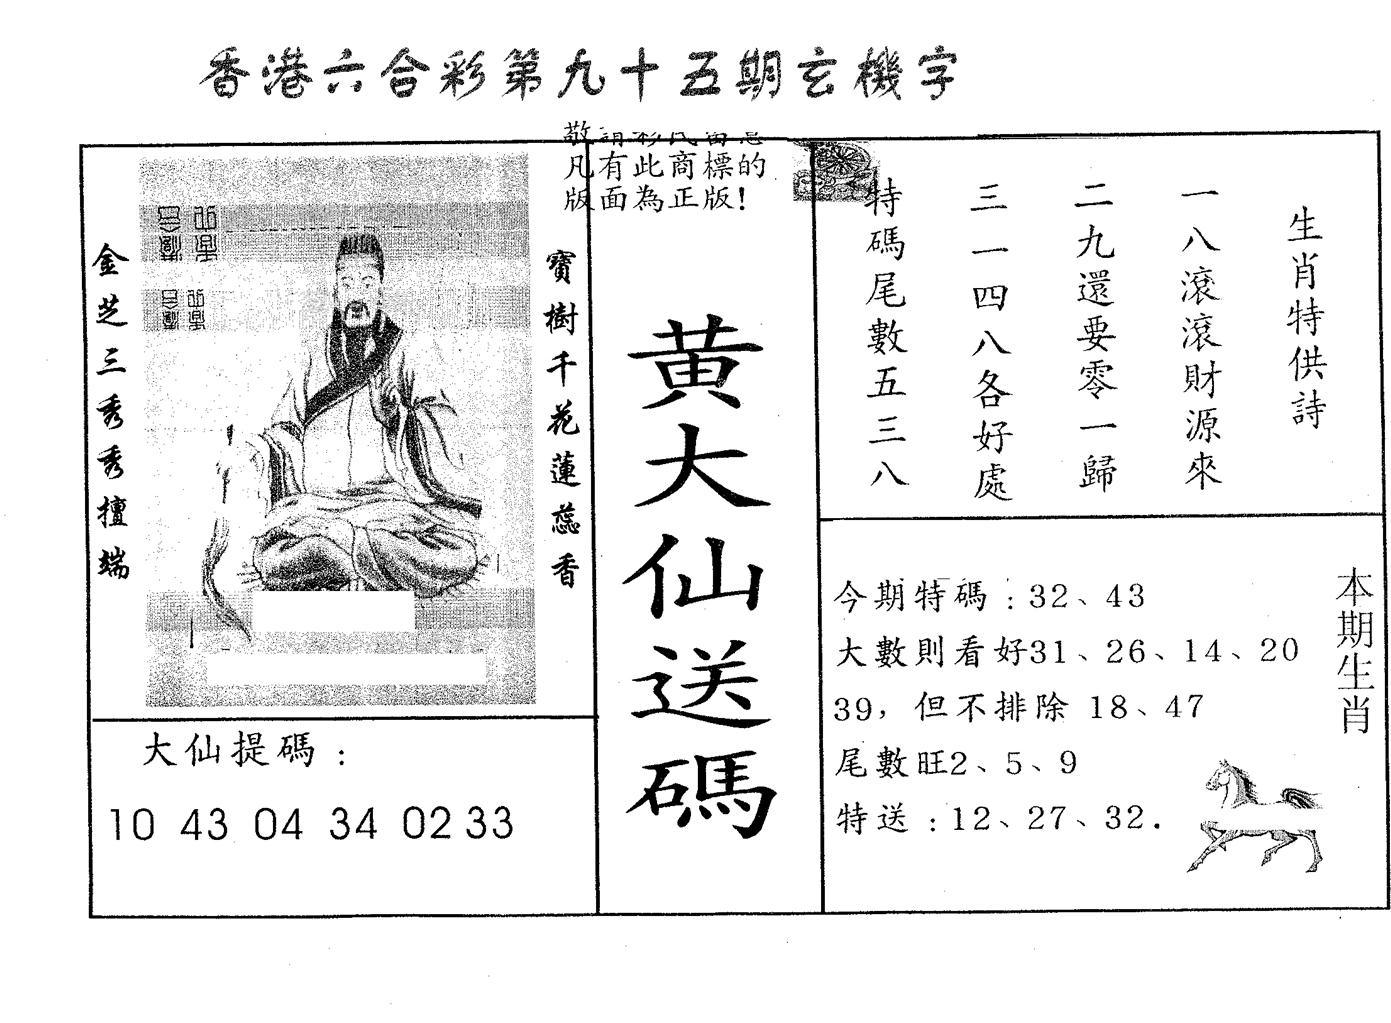 香港六合彩第九十五期玄機字
敬請彩民留意
凡有此商標的
版面為正版!
金芝三秀秀擅端
寶樹千花蓮蕊香
黄大仙送碼
生肖特供詩
一八滾滾財源來
二九還要零一歸
三一四八各好處
特碼尾數五三八
大仙提碼:
10 43 04 34 02 33
今期特碼:32、43
大數則看好31、26、14、20
39,但不排除 18、47
尾數旺2、5、9
特送:12、27、32.
本期生肖